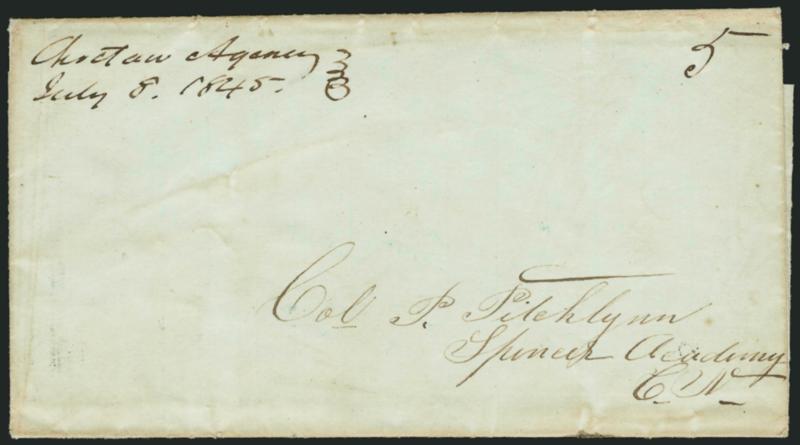 Choctaw Agency
July 8. 1845.
5
Col. P. Pitchlynn
Spencer Academy
C. N.